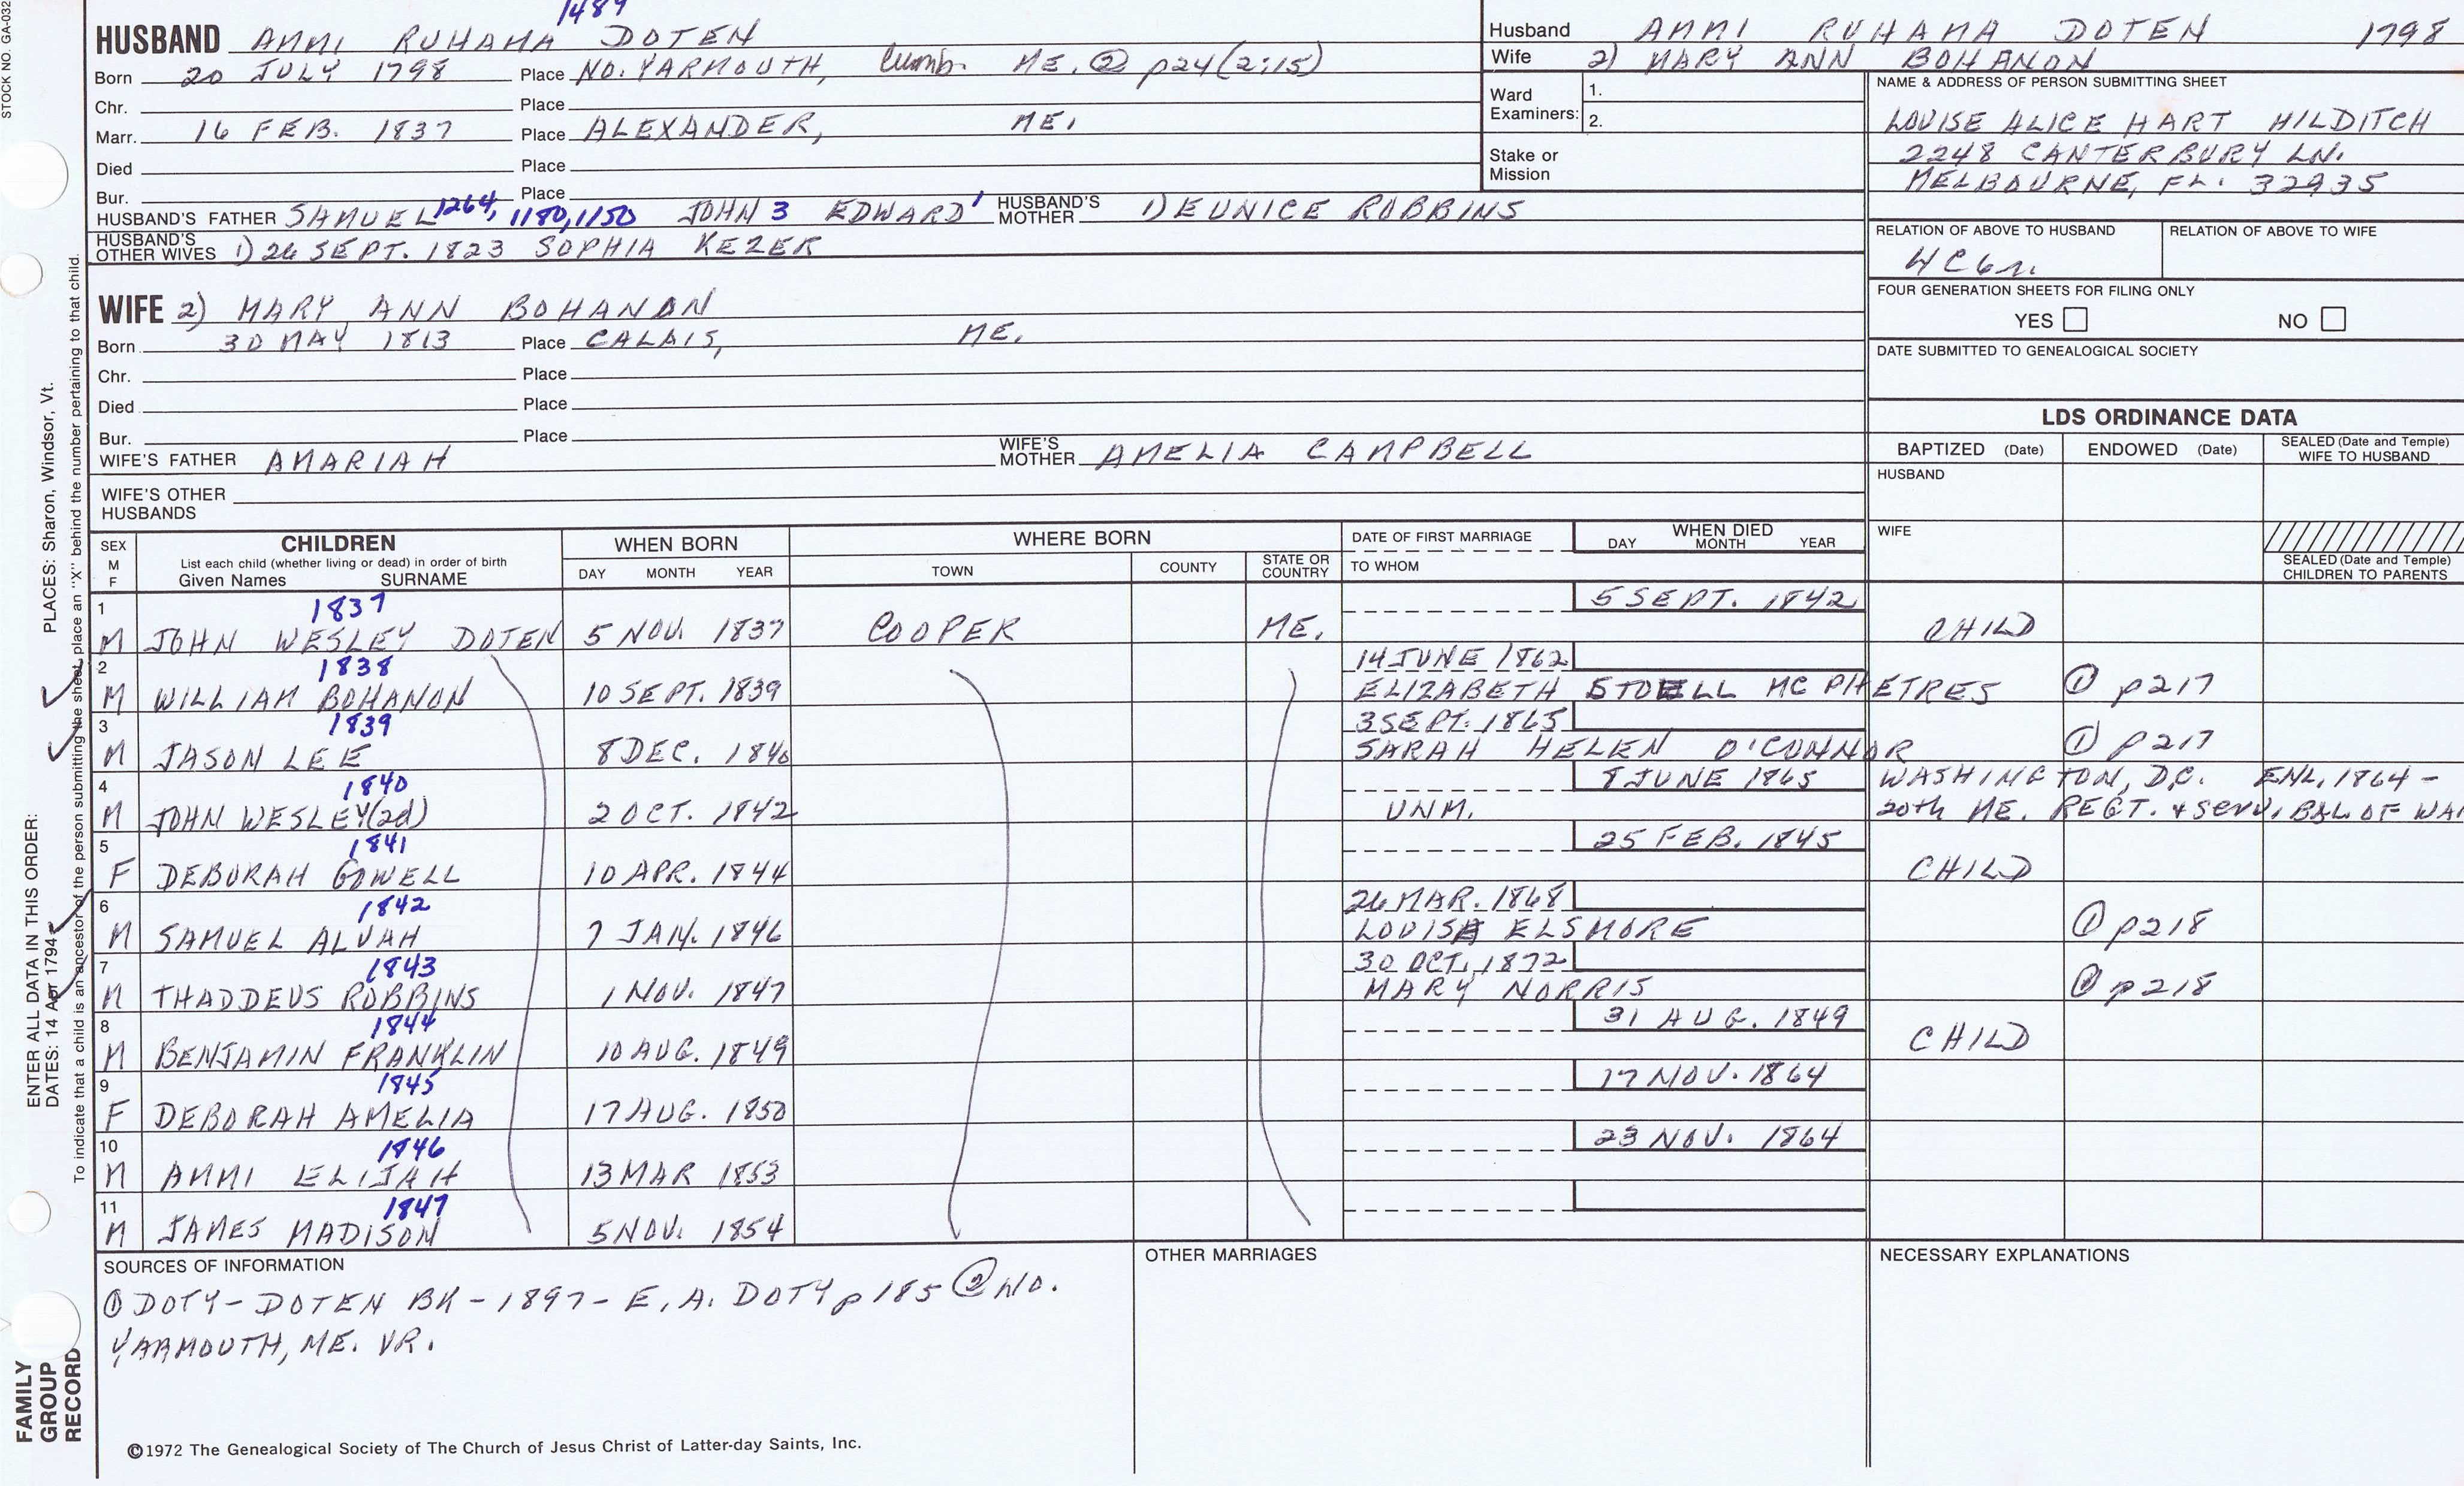 STOCK NO. GA-032
1489
HUSBAND AMMI RUHAMA DOTEN
Born 20 JULY 1798 Place NO. YARMOUTH, Cumb. ME. ② p24 (2:15)
Chr. Place
Marr. 16 FEB. 1837 Place ALEXANDER, ME.
Died Place
Bur. Place
HUSBAND'S FATHER SAMUEL 1264, 1180, 1150 JOHN 3 EDWARD 1 HUSBAND'S MOTHER 1) EUNICE ROBBINS
HUSBAND'S OTHER WIVES 1) 26 SEPT. 1823 SOPHIA KEZER
WIFE 2) MARY ANN BOHANON
Born 30 MAY 1813 Place CALAIS, ME.
Chr. Place
Died Place
Bur. Place
WIFE'S FATHER AMARIAH WIFE'S MOTHER AMELIA CAMPBELL
WIFE'S OTHER HUSBANDS
Husband AMMI RUHAMA DOTEN 1798
Wife 2) MARY ANN BOHANON
Ward Examiners: 1.
2.
Stake or Mission
NAME & ADDRESS OF PERSON SUBMITTING SHEET
LOUISE ALICE HART HILDITCH
2248 CANTERBURY LN.
MELBOURNE, FL. 32935
RELATION OF ABOVE TO HUSBAND RELATION OF ABOVE TO WIFE
4C6r.
FOUR GENERATION SHEETS FOR FILING ONLY
YES NO
DATE SUBMITTED TO GENEALOGICAL SOCIETY
LDS ORDINANCE DATA
BAPTIZED (Date) ENDOWED (Date) SEALED (Date and Temple) WIFE TO HUSBAND
HUSBAND
WIFE
SEALED (Date and Temple) CHILDREN TO PARENTS
SEX M F CHILDREN List each child (whether living or dead) in order of birth Given Names SURNAME
WHEN BORN DAY MONTH YEAR
WHERE BORN TOWN COUNTY STATE OR COUNTRY
DATE OF FIRST MARRIAGE TO WHOM
WHEN DIED DAY MONTH YEAR
1 1837 5 SEPT. 1842
M JOHN WESLEY DOTEN 5 NOV. 1837 COOPER ME. CHILD
2 1838 14 JUNE 1862
M WILLIAM BOHANON 10 SEPT. 1839 ELIZABETH STOELL MC PHETRES ① p217
3 1839 3 SEPT. 1865
M JASON LEE 8 DEC. 1840 SARAH HELEN O'CONNOR ① p217
4 1840 8 JUNE 1865 WASHINGTON, D.C. ENL. 1864 -
M JOHN WESLEY (2d) 2 OCT. 1842 UNM. 20th ME. REGT. + serv. BAL OF WAR
5 1841 25 FEB. 1845
F DEBORAH GOWELL 10 APR. 1844 CHILD
6 1842 26 MAR. 1868
M SAMUEL ALVAH 7 JAN. 1846 LOUISA ELSMORE ① p218
7 1843 30 OCT. 1872
M THADDEUS ROBBINS 1 NOV. 1847 MARY NORRIS ① p218
8 1844 31 AUG. 1849
M BENJAMIN FRANKLIN 10 AUG. 1849 CHILD
9 1845 17 NOV. 1864
F DEBORAH AMELIA 17 AUG. 1850
10 1846 23 NOV. 1864
M AMMI ELIJAH 13 MAR 1853
11 1847
M JAMES MADISON 5 NOV. 1854
SOURCES OF INFORMATION
① DOTY-DOTEN BK - 1897 - E. A. DOTY p 185 ② NO.
YARMOUTH, ME. VR.
OTHER MARRIAGES
NECESSARY EXPLANATIONS
©1972 The Genealogical Society of The Church of Jesus Christ of Latter-day Saints, Inc.
FAMILY GROUP RECORD
ENTER ALL DATA IN THIS ORDER:
PLACES: Sharon, Windsor, Vt.
DATES: 14 Apr 1794
To indicate that a child is an ancestor of the person submitting the sheet, place an "X" behind the number pertaining to that child.